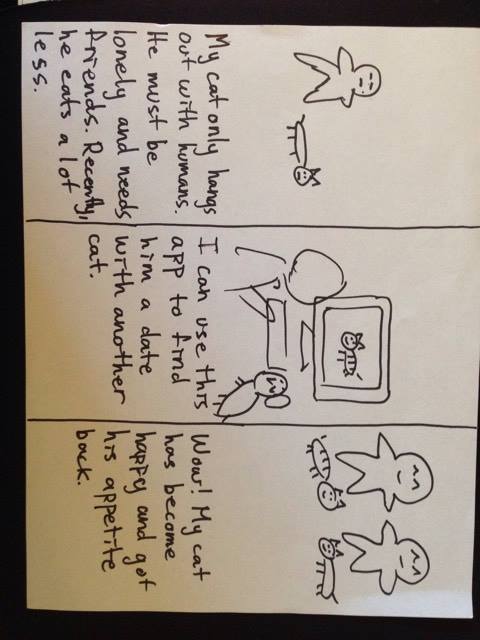 My cat only hangs
out with humans.
He must be
lonely and needs
friends. Recently,
he eats a lot
less.
I can use this
app to find
him a date
with another
cat.
Wow! My cat
has become
happy and got
his appetite
back.